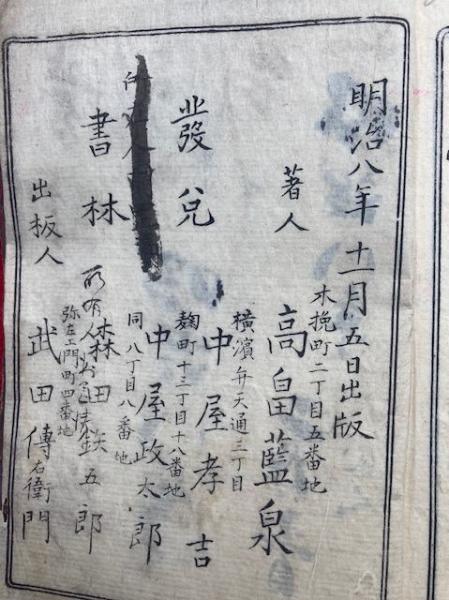 明治八年十一月五日出版
木挽町二丁目五番地
著人 高畠藍泉
横濱弁天通三丁目
發兌 中屋孝吉
麹町十三丁目十八番地
中屋政太郎
同八丁目八番地
書林 森田鉄五郎
弥左エ門町四番地
出板人 武田傳右衛門